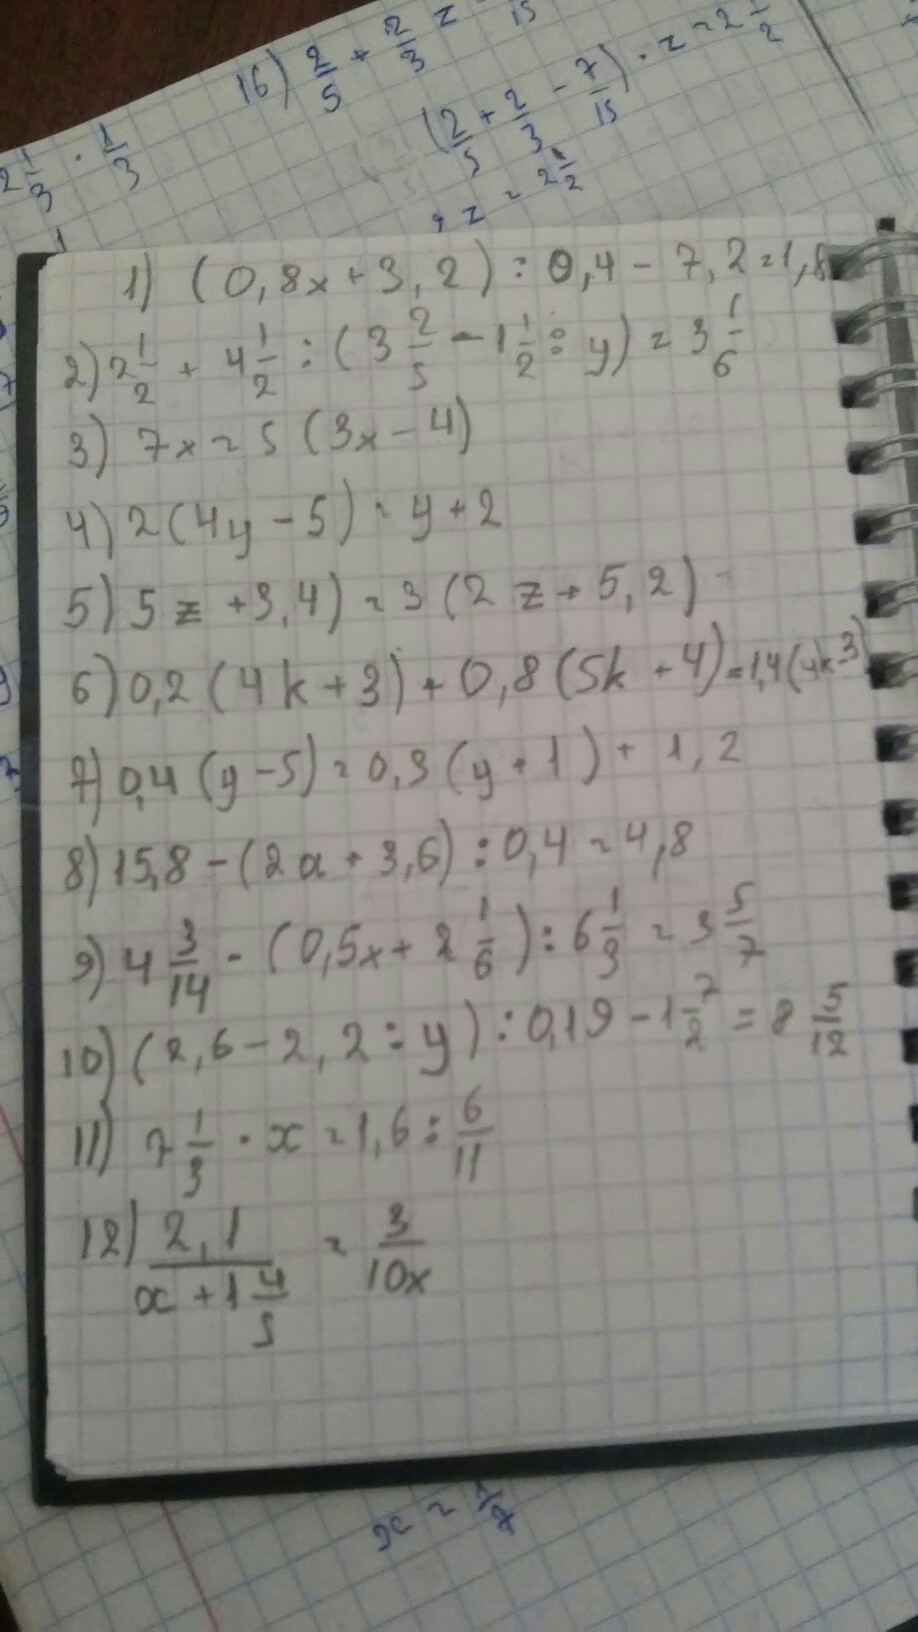 16) 2/5 + 2/3 z 15
(2/5 + 2/3 - 7/15) · z = 2 1/2
z = 2 1/2
2 1/3 · 1/3
1) (0,8x + 3,2) : 0,4 - 7,2 = 1,8
2) 2 1/2 + 4 1/2 : (3 2/5 - 1 1/2 : y) = 3 1/6
3) 7x = 5 (3x - 4)
4) 2(4y - 5) = y + 2
5) 5z + 3,4) = 3 (2z + 5,2)
6) 0,2 (4k + 3) + 0,8 (5k + 4) = 1,4 (4k-3)
7) 0,4 (y - 5) = 0,3 (y + 1) + 1,2
8) 15,8 - (2a + 3,6) : 0,4 = 4,8
9) 4 3/14 - (0,5x + 2 1/6) : 6 1/3 = 3 5/7
10) (2,6 - 2,2 : y) : 0,19 - 1 7/2 = 8 5/12
11) 7 1/3 · x = 1,6 : 6/11
12) 2,1/(x + 1 4/5) = 3/10x